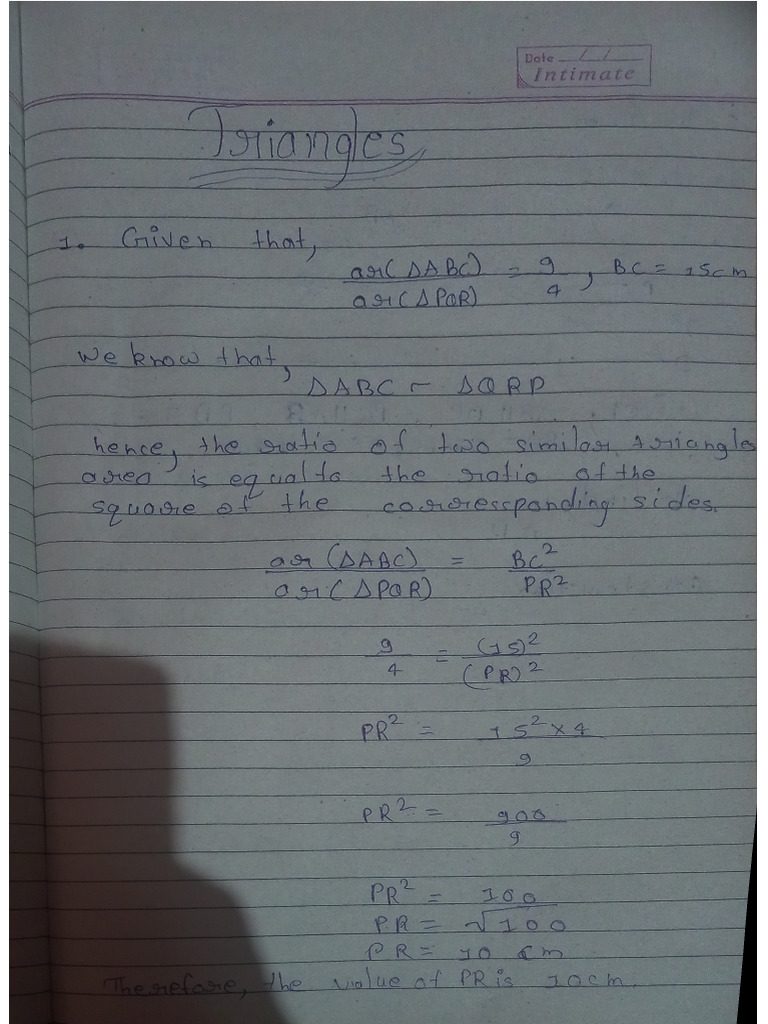 Date / /
Intimate
Triangles
1. Given that,
ar(ΔABC) / ar(ΔPQR) = 9/4, BC = 15cm
We know that,
ΔABC ~ ΔQRP
hence, the ratio of two similar triangles
area is equal to the ratio of the
square of the corresponding sides.
ar(ΔABC) / ar(ΔPQR) = BC² / PR²
9/4 = (15)² / (PR)²
PR² = 15² × 4 / 9
PR² = 900 / 9
PR² = 100
PR = √100
PR = 10 cm
Therefore, the value of PR is 10cm.